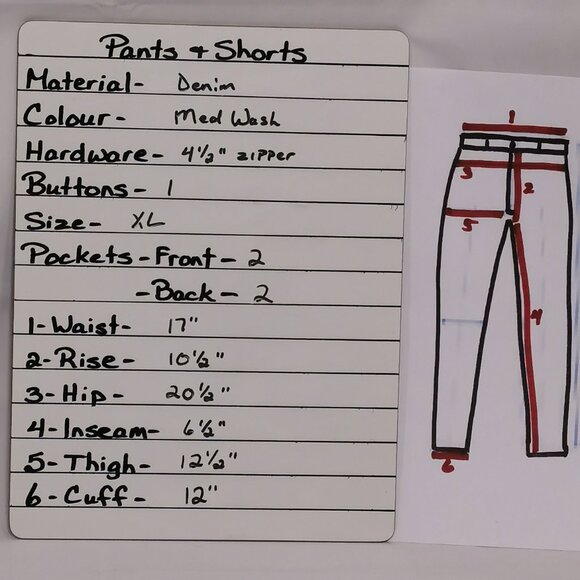 Pants & Shorts
Material- Denim
Colour- Med Wash
Hardware- 4½" zipper
Buttons- 1
Size- XL
Pockets-Front- 2
-Back- 2
1-Waist- 17"
2-Rise- 10½"
3-Hip- 20½"
4-Inseam- 6½"
5-Thigh- 12½"
6-Cuff- 12"
1
3
2
5
4
6